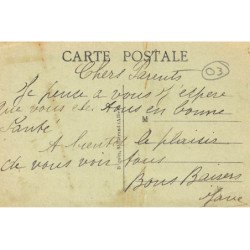 CARTE POSTALE
03
Chers Parents
Je pense a vous J'espère
que vous ete tous en bonne
Santé
M
A bientôt le plaisir
de vous voir tous
Bons Baisers